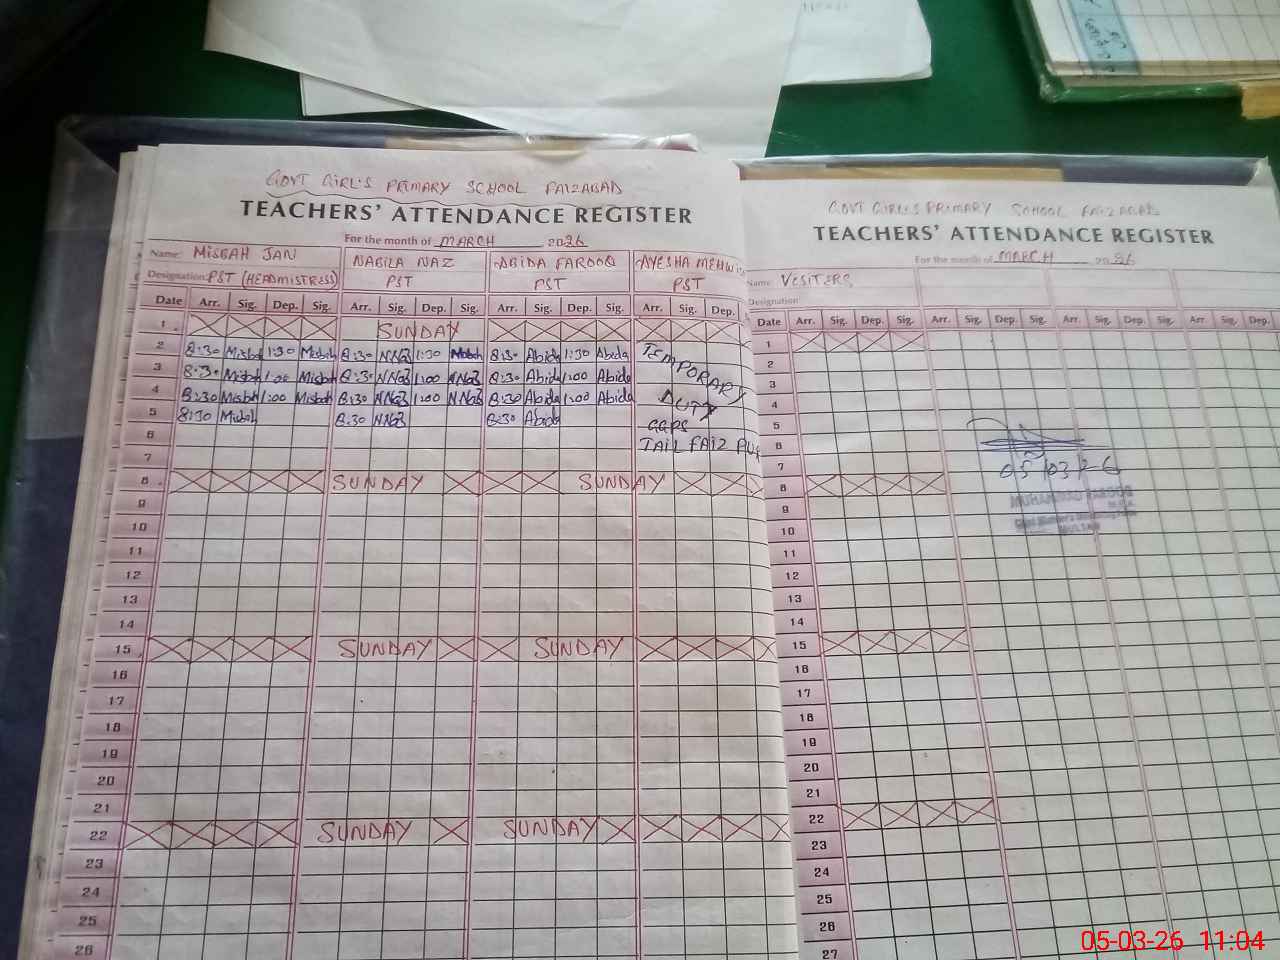 GOVT GIRL'S PRIMARY SCHOOL FAIZABAD
TEACHERS' ATTENDANCE REGISTER
For the month of MARCH 2026
Name: MISBAH JAN NABILA NAZ ABIDA FAROOQ AYESHA
Designation: PST (HEADMISTRESS) PST PST PST
Date Arr. Sig. Dep. Sig. Arr. Sig. Dep. Sig. Arr. Sig. Dep. Sig. Arr. Sig. Dep.
1 SUNDAY
2 8:30 Misbah 1:30 Misbah 8:30 NNaz 1:30 8:30 Abida 1:30 Abida
3 8:30 Misbah 1:00 Misbah 8:30 NNaz 1:00 NNaz 8:30 Abida 1:00 Abida
4 8:30 Misbah 1:00 Misbah 8:30 NNaz 1:00 NNaz 8:30 Abida 1:00 Abida
5 8:30 Misbah 8:30 NNaz 8:30 Abida
TEMPORARY
DUTY
GGPS
TAIL FAIZ
6
7
8 SUNDAY SUNDAY
9
10
11
12
13
14
15 SUNDAY SUNDAY
16
17
18
19
20
21
22 SUNDAY SUNDAY
23
24
25
26
GOVT GIRL'S PRIMARY SCHOOL FAIZABAD
TEACHERS' ATTENDANCE REGISTER
For the month of MARCH 2026
Name: VESITERS
Designation:
Date Arr. Sig. Dep. Sig. Arr. Sig. Dep. Sig. Arr. Sig. Dep. Sig. Arr. Sig. Dep.
1
2
3
4
5
6
7
05/03/26
8
MUHAMMAD
9
10
11
12
13
14
15
16
17
18
19
20
21
22
23
24
25
26
27
05-03-26 11:04